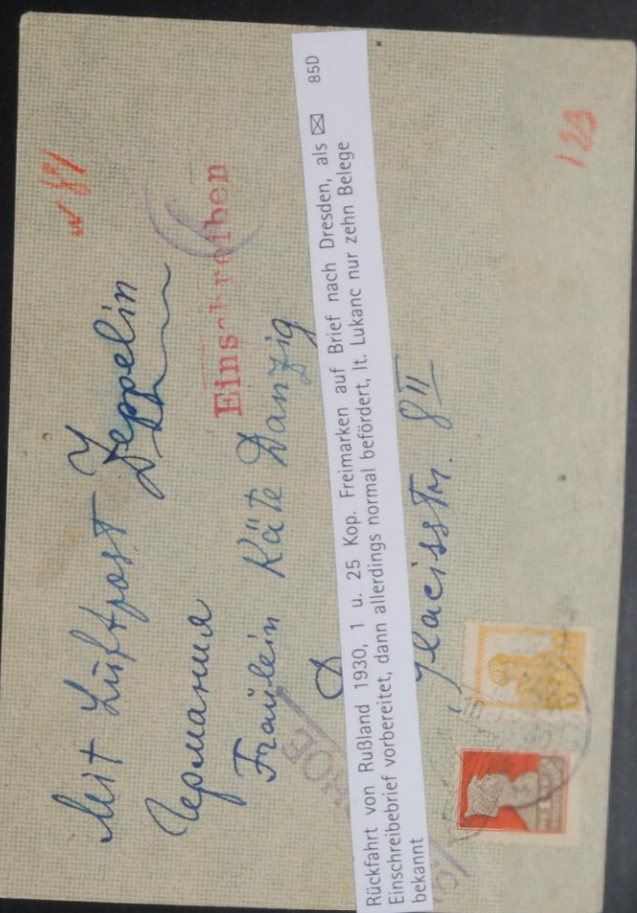 Mit Luftpost Zeppelin
Германия
Einschreiben
Fräulein Käte Danzig
D
Glacisstr. 8 II
Rückfahrt von Rußland 1930, 1 u. 25 Kop. Freimarken auf Brief nach Dresden, als ✉ 85D
Einschreibebrief vorbereitet, dann allerdings normal befördert, lt. Lukanc nur zehn Belege
bekannt